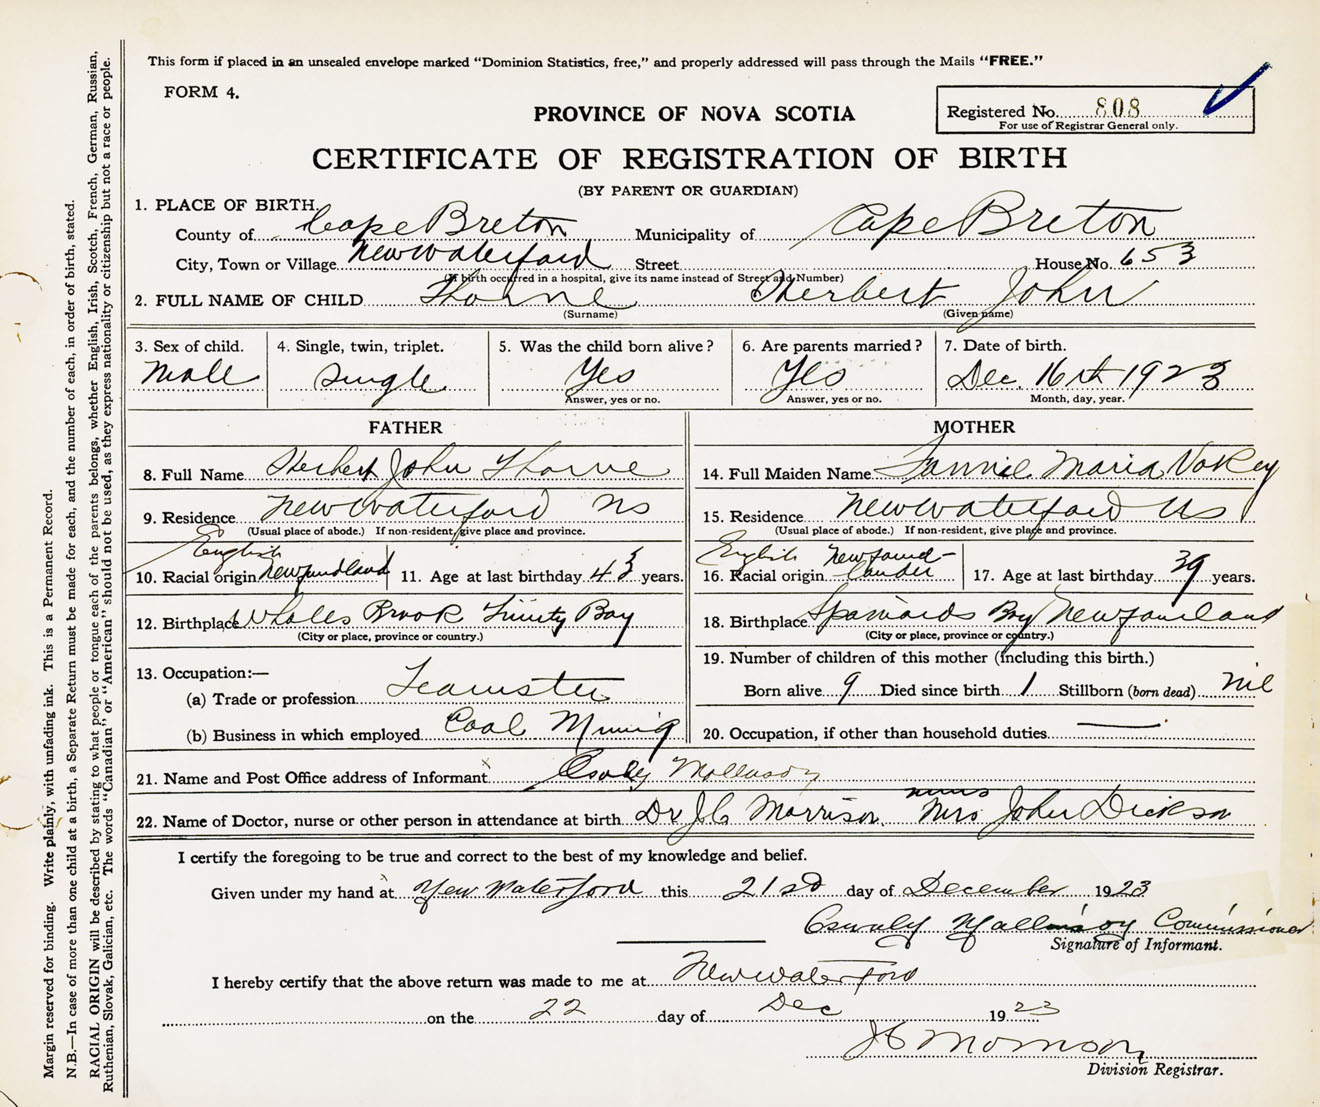 This form if placed in an unsealed envelope marked "Dominion Statistics, free," and properly addressed will pass through the Mails "FREE."
FORM 4.
Registered No. 808
For use of Registrar General only.
PROVINCE OF NOVA SCOTIA
CERTIFICATE OF REGISTRATION OF BIRTH
(BY PARENT OR GUARDIAN)
1. PLACE OF BIRTH.
County of Cape Breton Municipality of Cape Breton
City, Town or Village New Waterford Street House No. 653
(If birth occurred in a hospital, give its name instead of Street and Number)
2. FULL NAME OF CHILD Thorne Herbert John
(Surname) (Given name)
3. Sex of child. 4. Single, twin, triplet. 5. Was the child born alive? 6. Are parents married? 7. Date of birth.
Male Single Yes Yes Dec. 16th 1923
Answer, yes or no. Answer, yes or no. Month, day, year.
FATHER MOTHER
8. Full Name Herbert John Thorne
9. Residence New Waterford NS
(Usual place of abode.) If non-resident, give place and province.
English
10. Racial origin Newfoundland 11. Age at last birthday 43 years.
12. Birthplace Whales Brook Trinity Bay
(City or place, province or country.)
13. Occupation:—
(a) Trade or profession Teamster
(b) Business in which employed Coal Mining
14. Full Maiden Name Fannie Maria Vokey
15. Residence New Waterford NS
(Usual place of abode.) If non-resident, give place and province.
English Newfound-
16. Racial origin lander 17. Age at last birthday 39 years.
18. Birthplace Spaniards Bay Newfounland
(City or place, province or country.)
19. Number of children of this mother (including this birth.)
Born alive 9 Died since birth 1 Stillborn (born dead) nil
20. Occupation, if other than household duties
21. Name and Post Office address of Informant
22. Name of Doctor, nurse or other person in attendance at birth Dr J C Morrison nurse Mrs John Dickson
I certify the foregoing to be true and correct to the best of my knowledge and belief.
Given under my hand at New Waterford this 21st day of December 1923
Commissioner
Signature of Informant.
I hereby certify that the above return was made to me at New Waterford
on the 22 day of Dec 1923
J C Morrison
Division Registrar.
Margin reserved for binding. Write plainly, with unfading ink. This is a Permanent Record.
N.B.—In case of more than one child at a birth, a Separate Return must be made for each, and the number of each, in order of birth, stated.
RACIAL ORIGIN will be described by stating to what people or tongue each of the parents belongs, whether English, Irish, Scotch, French, German, Russian,
Ruthenian, Slovak, Galician, etc. The words "Canadian" or "American" should not be used, as they express nationality or citizenship but not a race or people.